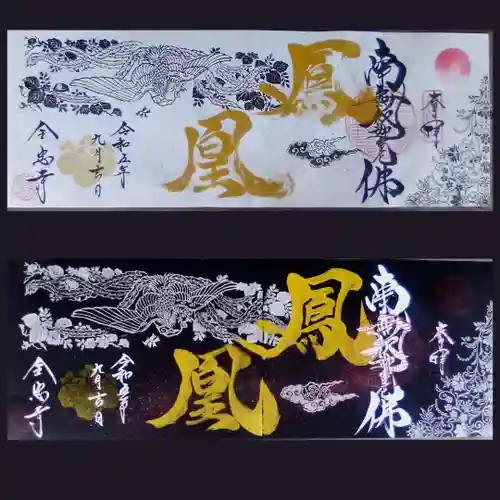 奉拝
南無
佛
鳳
凰
令和五年
九月吉日
全忠寺
奉拝
南無
佛
鳳
凰
令和五年
九月吉日
全忠寺